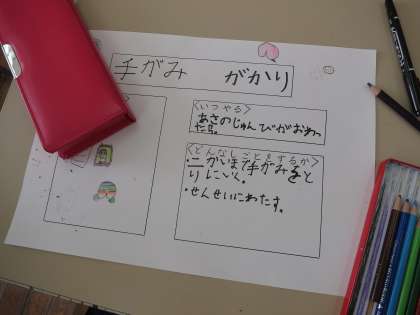 手がみ がかり
<いつやる>
あさのじゅんびがおわっ
たす。
<どんなしごとをするか>
・二かいまで手がみをと
りにいく。
・せんせいにわたす。